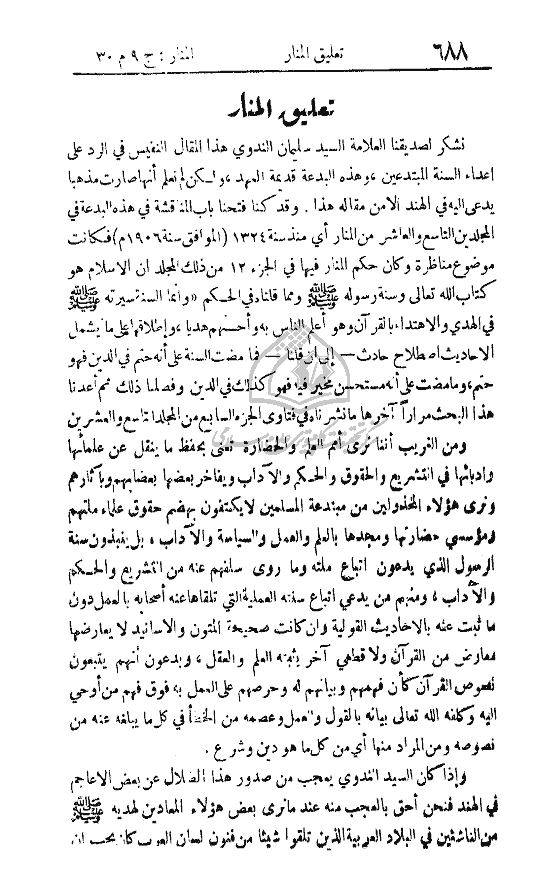 ٦٨٨ تعليق المنار المنار : ج ٩ م ٣٠
تعليق المنار
نشكر لصديقنا العلامة السيد سليمان الندوي هذا المقال النفيس في الرد على
اعداء السنة المبتدعين ، وهذه البدعة قديمة العهد ، ولكن لم نعلم أنها صارت مذهبا
يدعى اليه في الهند الا من مقاله هذا . وقد كنا فتحنا باب المناقشة في هذه البدعة في
المجلدين التاسع والعاشر من المنار أي منذ سنة ١٣٢٤ (الموافق سنة ١٩٠٦ م) فكانت
موضوع مناظرة وكان حكم المنار فيها في الجزء ١٢ من ذلك المجلد ان الاسلام هو
كتاب الله تعالى وسنة رسوله ﷺ ومما قلناه في الحكم «وانما السنة سيرته ﷺ
في الهدي والاهتداء بالقرآن وهو أعلم الناس به وأحسنهم هديا ، واطلاقها على ما يشمل
الاحاديث اصطلاح حادث — إلى ان قلنا — فما مضت السنة على أنه حتم في الدين فهو
حتم ، وما مضت على أنه مستحسن مخير فيه فهو كذلك في الدين وفصلنا ذلك ثم أعدنا
هذا البحث مراراً آخرها ما نشرناه في فتاوى الجزء السابع من المجلد التاسع والعشرين
ومن الغريب أننا نرى أمم العلم والحضارة تعنى بحفظ ما ينقل عن علمائها
وادبائها في التشريع والحقوق والحكم والآداب ويفاخر بعضها بعضا بهم وبآثارهم
ونرى هؤلاء المخذولين من مبتدعة المسلمين لا يكتفون بهضم حقوق علماء ملتهم
ومؤسسي حضارتها ومجدها بالعلم والعمل والسياسة والآداب ، بل ينبذون سنة
الرسول الذي يدعون اتباع ملته وما روى سلفهم عنه من التشريع والحكم
والآداب ، ومنهم من يدعي اتباع سنته العملية التي تلقاها عنه أصحابه بالعمل دون
ما ثبت عنه بالاحاديث القولية وان كانت صحيحة المتون والاسانيد لا يعارضها
معارض من القرآن ولا قطعي آخر يثبته العلم والعقل ، ويدعون أنهم يتبعون
نصوص القرآن كأن فهمهم وبيانهم له وحرصهم على العمل به فوق فهم من أوحي
اليه وكلفه الله تعالى بيانه بالقول والعمل وعصمه من الخطأ في كل ما يبلغه عنه من
نصوصه ومن المراد منها أي من كل ما هو دين وشرع .
وإذا كان السيد الندوي يعجب من صدور هذا الضلال عن بعض الاعاجم
في الهند فنحن أحق بالعجب منه عند ما نرى بعض هؤلاء المعادين لهديه ﷺ
من الناشئين في البلاد العربية الذين تلقوا شيئا من فنون لسان العرب كان يجب ان